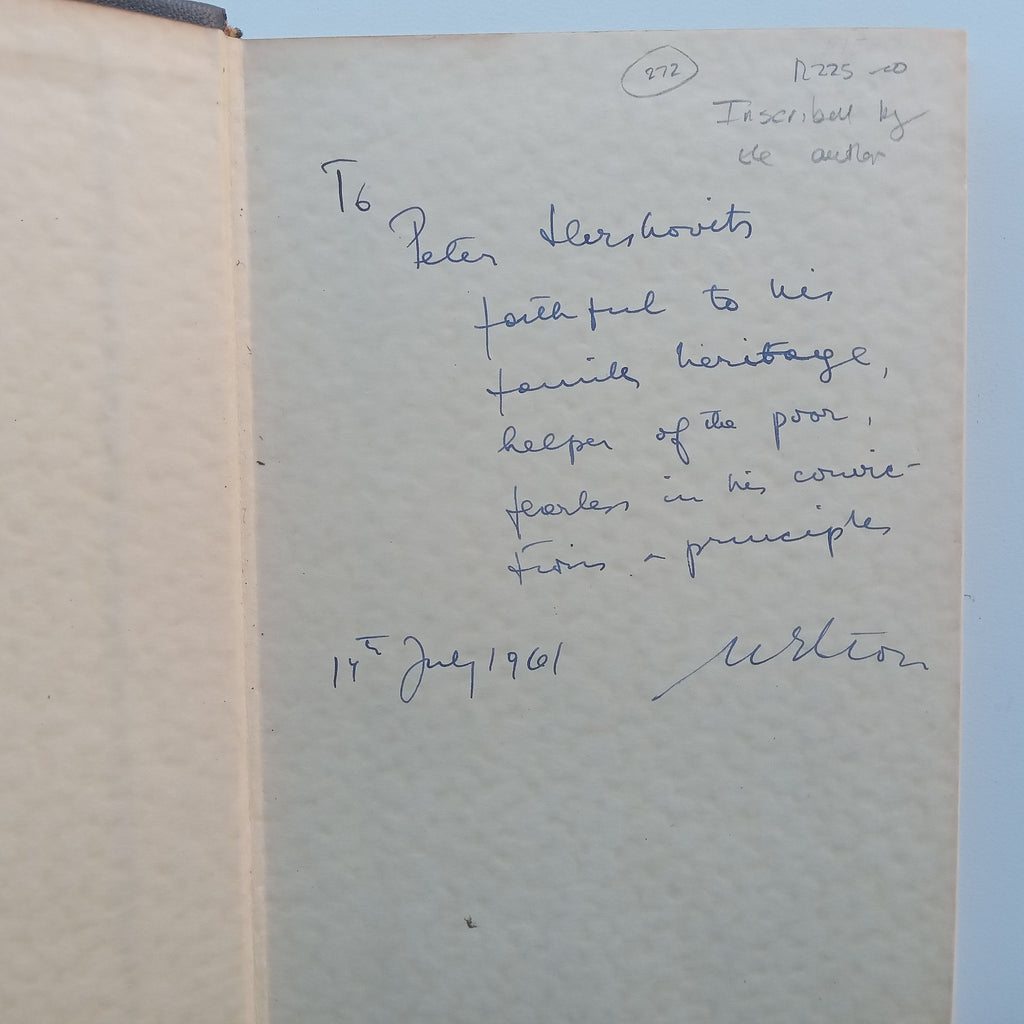 272 R225-00
Inscribed by
the author
To
Peter Herskovits
faithful to his
family heritage,
helper of the poor,
fearless in his convic-
tions - principles
14th July 1961